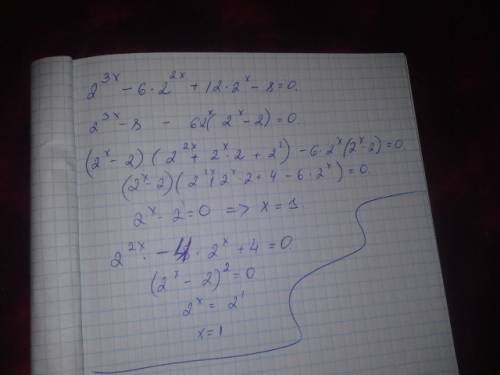 2^{3x} - 6 · 2^{2x} + 12 · 2^x - 8 = 0.
2^{3x} - 8 - 6·2^x(2^x - 2) = 0
(2^x - 2) (2^{2x} + 2^x · 2 + 2^1) - 6 · 2^x (2^x · 2) = 0
(2^x - 2) (2^{2x} + 2^x · 2 + 4 - 6 · 2^x) = 0
2^x - 2 = 0 => x = 1.
2^{2x} - 4 · 2^x + 4 = 0
(2^x - 2)^2 = 0
2^x = 2^1
x = 1